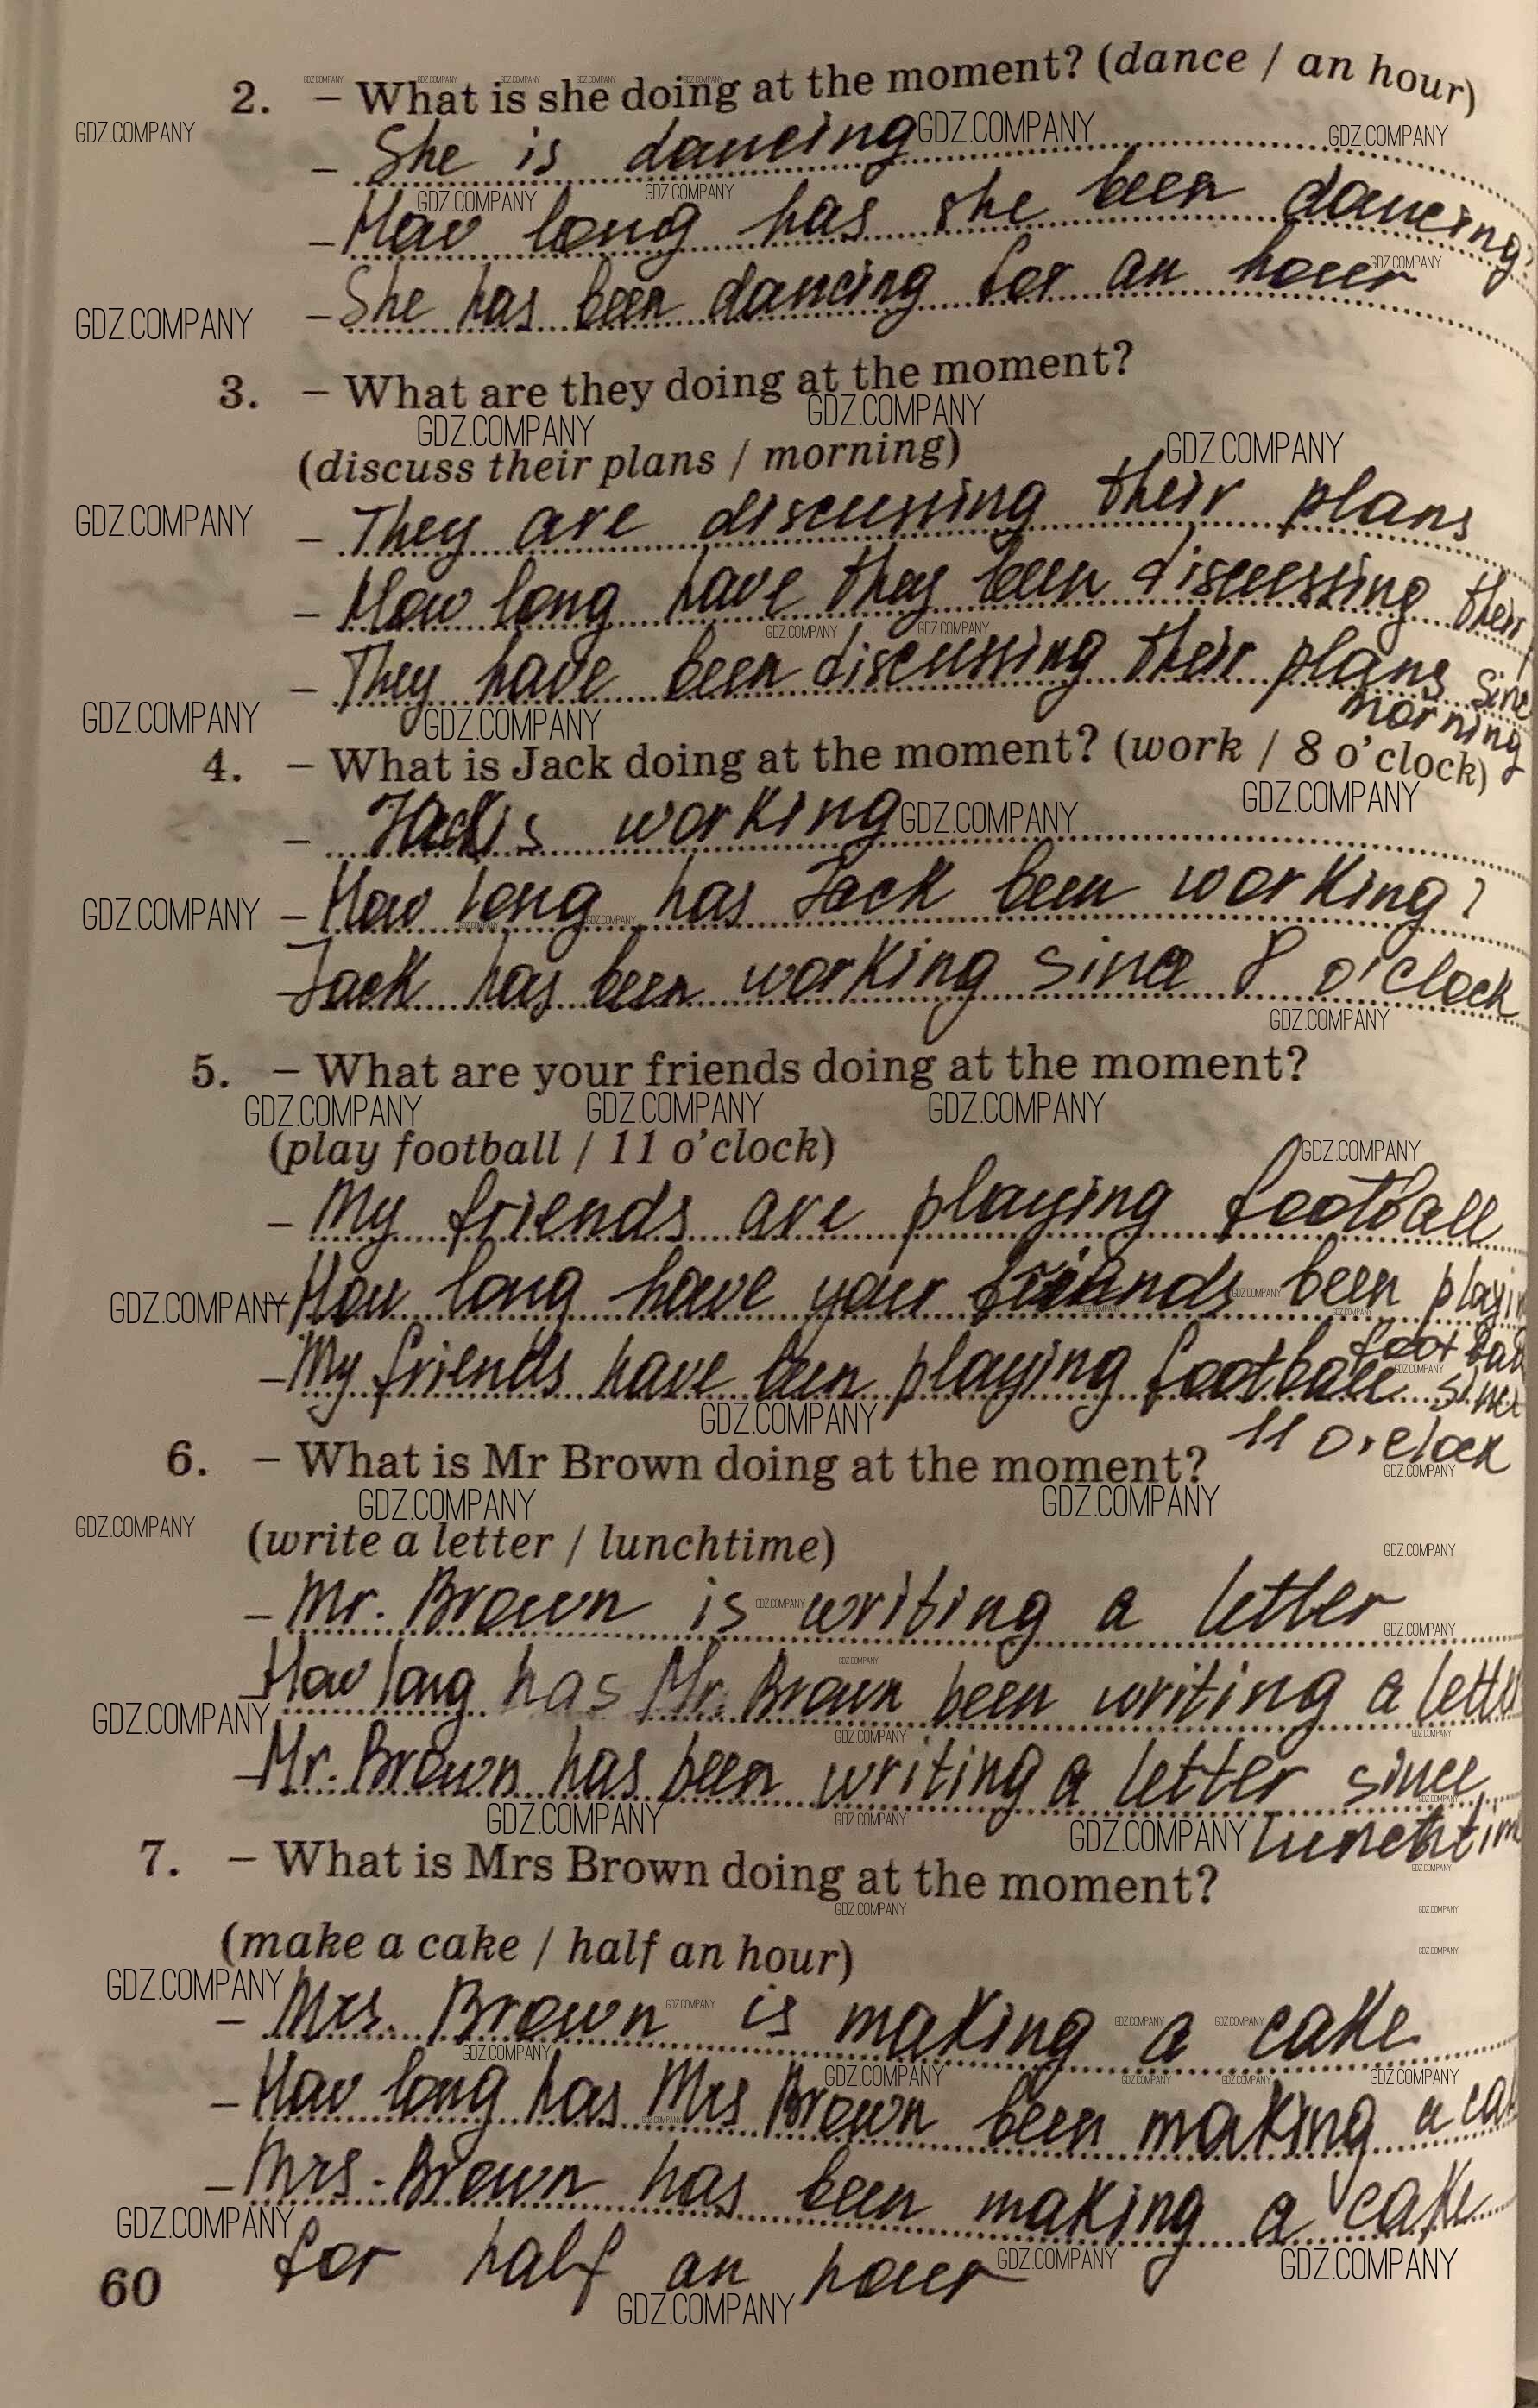 2. – What is she doing at the moment? (dance / an hour)
– She is dancing
– How long has she been dancing?
– She has been dancing for an hour
3. – What are they doing at the moment?
(discuss their plans / morning)
– They are discussing their plans
– How long have they been discussing their
– They have been discussing their plans since
morning
4. – What is Jack doing at the moment? (work / 8 o'clock)
– Jack is working
– How long has Jack been working?
– Jack has been working since 8 o'clock
5. – What are your friends doing at the moment?
(play football / 11 o'clock)
– My friends are playing football
– How long have your friends been playin
footbal
– My friends have been playing football since
11 o'clock
6. – What is Mr Brown doing at the moment?
(write a letter / lunchtime)
– Mr. Brown is writing a letter
– How long has Mr. Brown been writing a lette
– Mr. Brown has been writing a letter since
lunchtim
7. – What is Mrs Brown doing at the moment?
(make a cake / half an hour)
– Mrs. Brown is making a cake
– How long has Mrs Brown been making a cak
– Mrs. Brown has been making a cake
for half an hour
60
GDZ.COMPANY